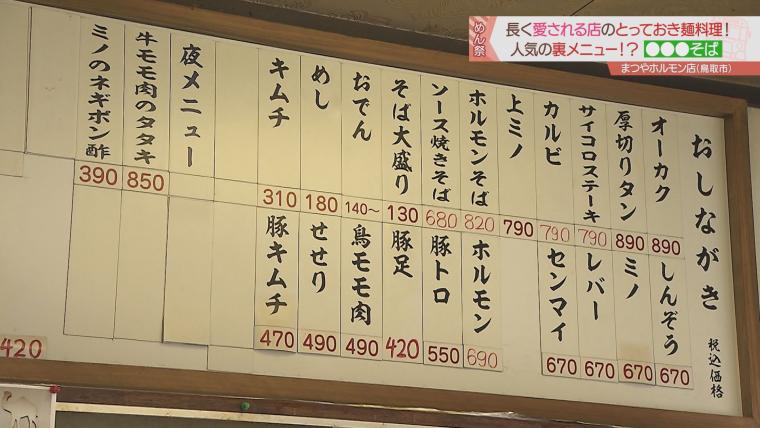 めん祭
長く愛される店のとっておき麺料理！
人気の裏メニュー！？ ●●●そば
まつやホルモン店（鳥取市）
おしながき 税込価格
オーカク 890
厚切りタン 890
サイコロステーキ 790
カルビ 790
上ミノ 790
ホルモンそば 820
ソース焼きそば 680
そば大盛り 130
おでん 140～
めし 180
キムチ 310
夜メニュー
牛モモ肉のタタキ 850
ミノのネギポン酢 390
しんぞう 670
ミノ 670
レバー 670
センマイ 670
ホルモン 690
豚トロ 550
豚足 420
鳥モモ肉 490
せせり 490
豚キムチ 470
420